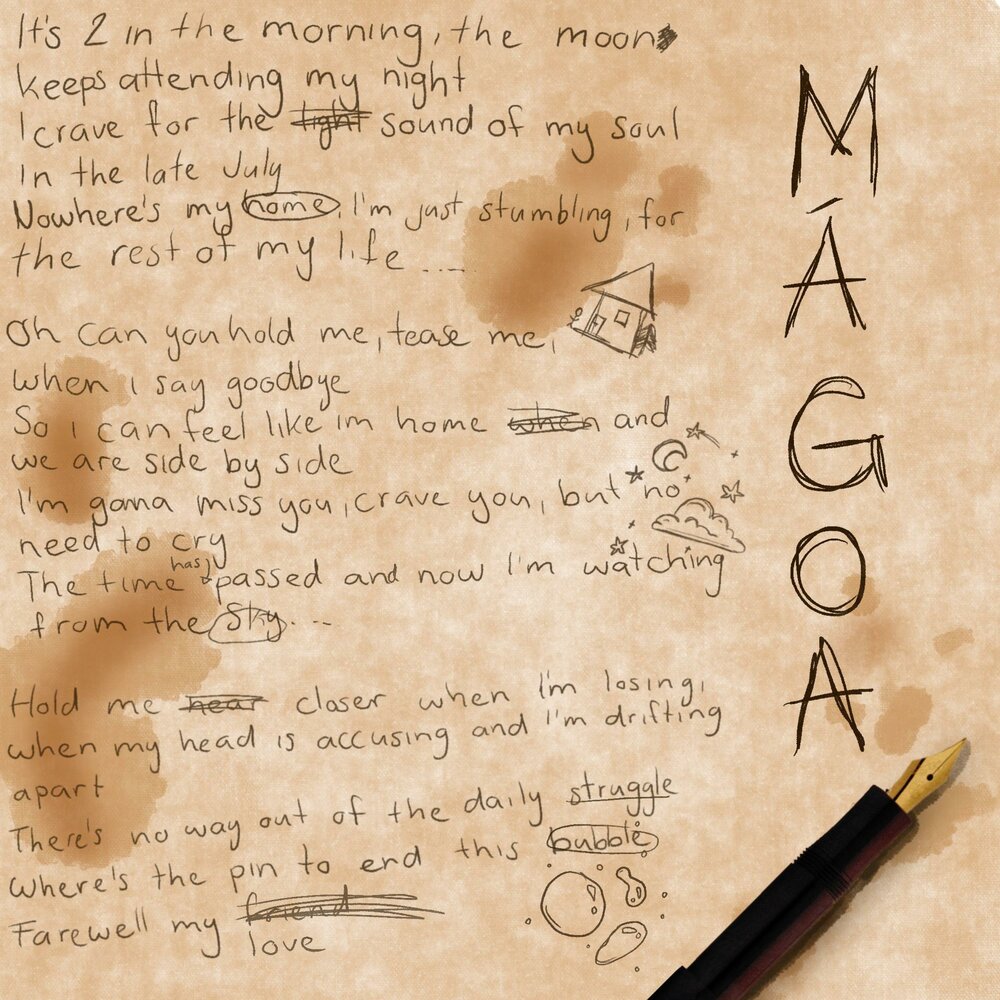 It's 2 in the morning, the moon
keeps attending my night
I crave for the tight sound of my soul
In the late July
Nowhere's my home, I'm just stumbling, for
the rest of my life .....
Oh can you hold me, tease me,
when i say goodbye
So i can feel like im home when and
we are side by side
I'm gonna miss you, crave you, but no
need to cry
The time has passed and now I'm watching
from the sky....
Hold me near closer when I'm losing,
when my head is accusing and I'm drifting
apart
There's no way out of the daily struggle
where's the pin to end this bubble
Farewell my friend
love
MÁGOA